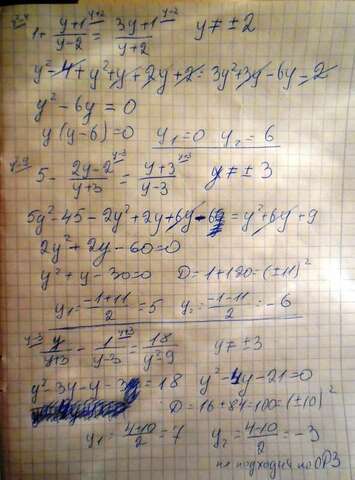 1 + (y+1)/(y-2) = (3y+1)/(y+2) y≠±2
y²-4+y²+y+2y+2=3y²+3y-6y-2
y²-6y=0
y(y-6)=0 y₁=0 y₂=6
5 - (2y-2)/(y+3) = (y+3)/(y-3) y≠±3
5y²-45-2y²+2y+6y-6=y²+6y+9
2y²+2y-60=0
y²+y-30=0 D=1+120=(±11)²
y₁=(-1+11)/2=5 y₂=(-1-11)/2=-6
y/(y+3) - 1/(y-3) = 18/(y²-9) y≠±3
y²-3y-y-3=18 y²-4y-21=0
D=16+84=100=(±10)²
y₁=(4+10)/2=7 y₂=(4-10)/2=-3
не подходит по ОРЗ